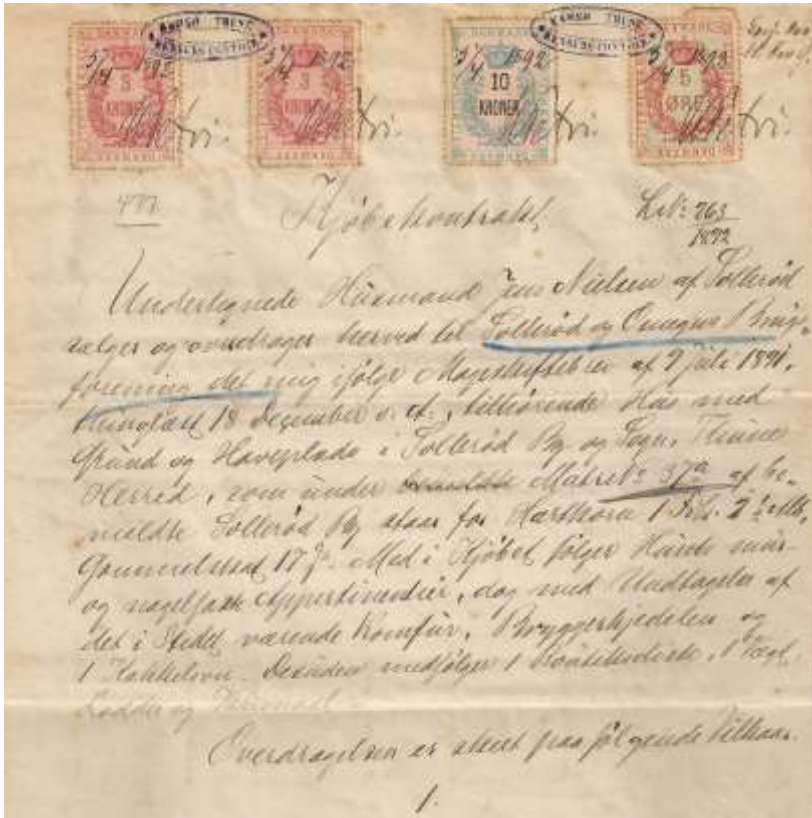 DANMARK DANMARK DANMARK DANMARK
5/4 1892 5/4 1892 5/4 1892 5/4 1892
5 KRONER 3 KRONER 10 KRONER 5 ØRE
477
Kjøbekontrakt.
763
1892
Undertegnede Huusmand Jens Nielsen af Søllerød
sælger og overdrager herved til Søllerød og Omegns Brugs-
forening det mig ifølge Mageskiftebrev af 9 Juli 1891,
thinglæst 18 December s. A., tilhørende Hus med
Grund og Haveplads i Søllerød By og Sogn,
Herred, som under Matr. No 37a af be-
meldte Søllerød By staar for Hartkorn 1
Gammelskat 17 Med i Kjøbet følger Husets mur-
og nagelfaste Appertinentier, dog med Undtagelse af
det i Stedet værende Komfur, Bryggerkjedelen og
1 Kakkelovn. Desuden medfølger 1 Boutiksdisk, 1 Vægt,
Lodder og
Overdragelsen er skeet paa følgende Vilkaar.
1.